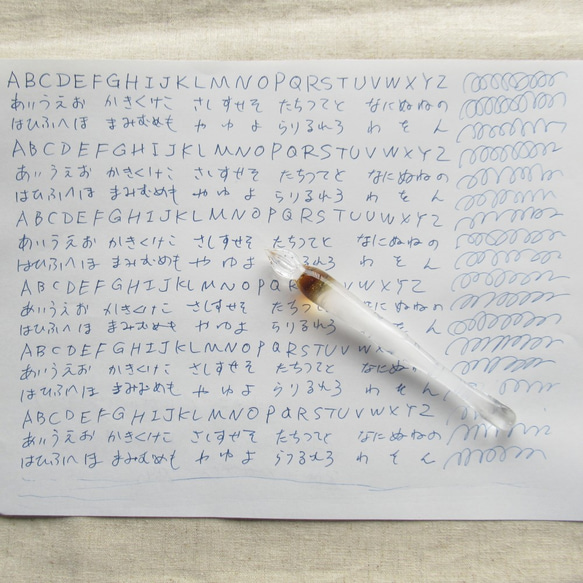 ABCDEFGHIJKLMNOPQRSTUVWXYZ
あいうえお かきくけこ さしすせそ たちつてと なにぬねの
はひふへほ まみむめも や ゆ よ らりるれろ わ を ん
ABCDEFGHIJKLMNOPQRSTUVWXYZ
あいうえお かきくけこ さしすせそ たちつてと なにぬねの
はひふへほ まみむめも や ゆ よ らりるれろ わ を ん
ABCDEFGHIJKLMNOPQRSTUVWXYZ
あいうえお かきくけこ さしすせそ たちつてと なにぬねの
はひふへほ まみむめも や ゆ よ るれろ わ を ん
ABCDEFGHIJKLMNOPQ RSTUVWXYZ
あいうえお かきくけこ さしすせそ たちつ なにぬねの
はひふへほ まみむめも や ゆ よ らりるれろ を ん
ABCDEFGHIJKLMNOPQRSTUVW YZ
あいうえお かきくけこ さしすせそ たちつてと なにぬ
はひふへほ まみむめも や ゆ よ らりるれろ わ を ん
ABCDEFGHIJKLMNOPQRSTUVWXYZ
あいうえお かきくけこ さしすせそ たちつてと なにぬねの
はひふへほ まみむめも や ゆ よ らりるれろ わ を ん